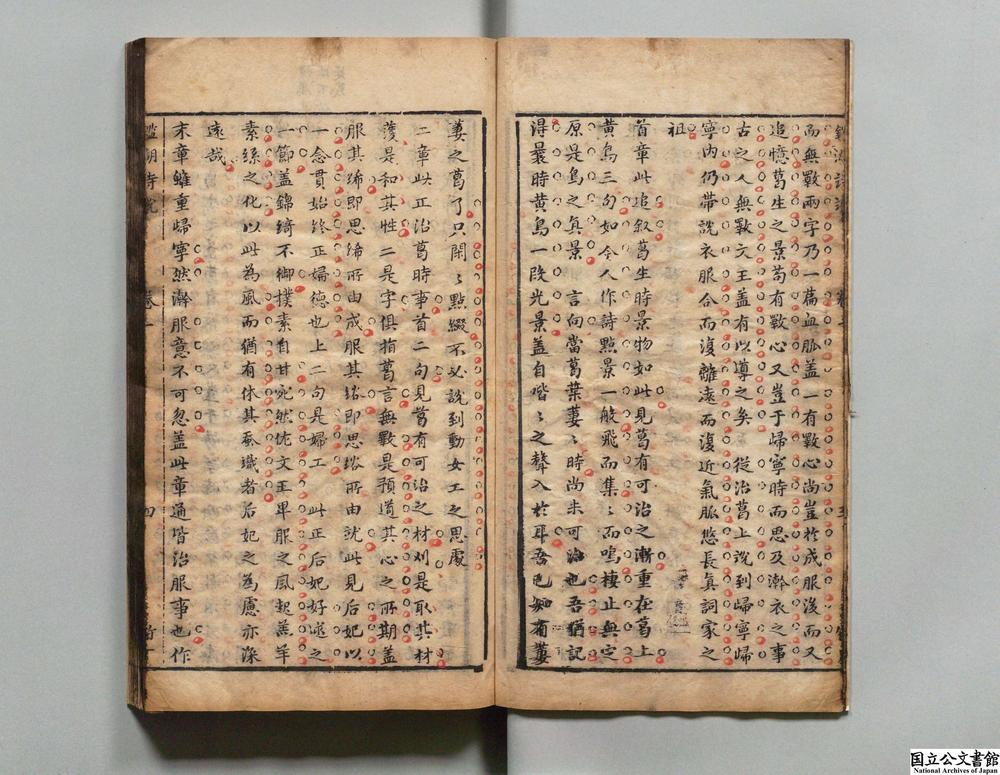 而無斁兩字乃一篇血脈盖一有斁心尚豈於成服後而又
追憶葛生之景苟有斁心又豈于歸寧時而思及澣衣之事
古之人無斁文王盖有以導之矣 從治葛上說到歸寧歸
寧內仍帶說衣服合而復離遠而復近氣脈悠長真詞家之
祖
首章此追叙葛生時景物如此見葛有可治之漸重在葛上
黃鳥三句如今人作詩點景一般飛而集〻而鳴棲止無定
原是鳥之真景 言向當葛葉萋〻時尚未可治也吾猶記
淂㝡時黃鳥一段光景盖自喈〻之聲入於耳吾已知有萋
萋之葛了只閑〻點綴不必說到動女工之思處
二章此正治葛時事首二句見葛有可治之材刈是取其材
濩是和其性二是字俱指葛言無斁是預道其心之所期盖
服其絺即思絺所由成服其綌即思綌所由就此見后妃以
一念貫始終正婦德也上二句是婦工 此正后妃好逑之
一節盖錦綺不御樸素自甘宛然佐文王卑服之風起羔羊
素絲之化以此為風而猶有休其蚕織者后妃之為慮亦深
遠哉
末章雖重歸寧然澣服意不可忽盖此章通皆治服事也作
卷一
四
国立公文書館
National Archives of Japan